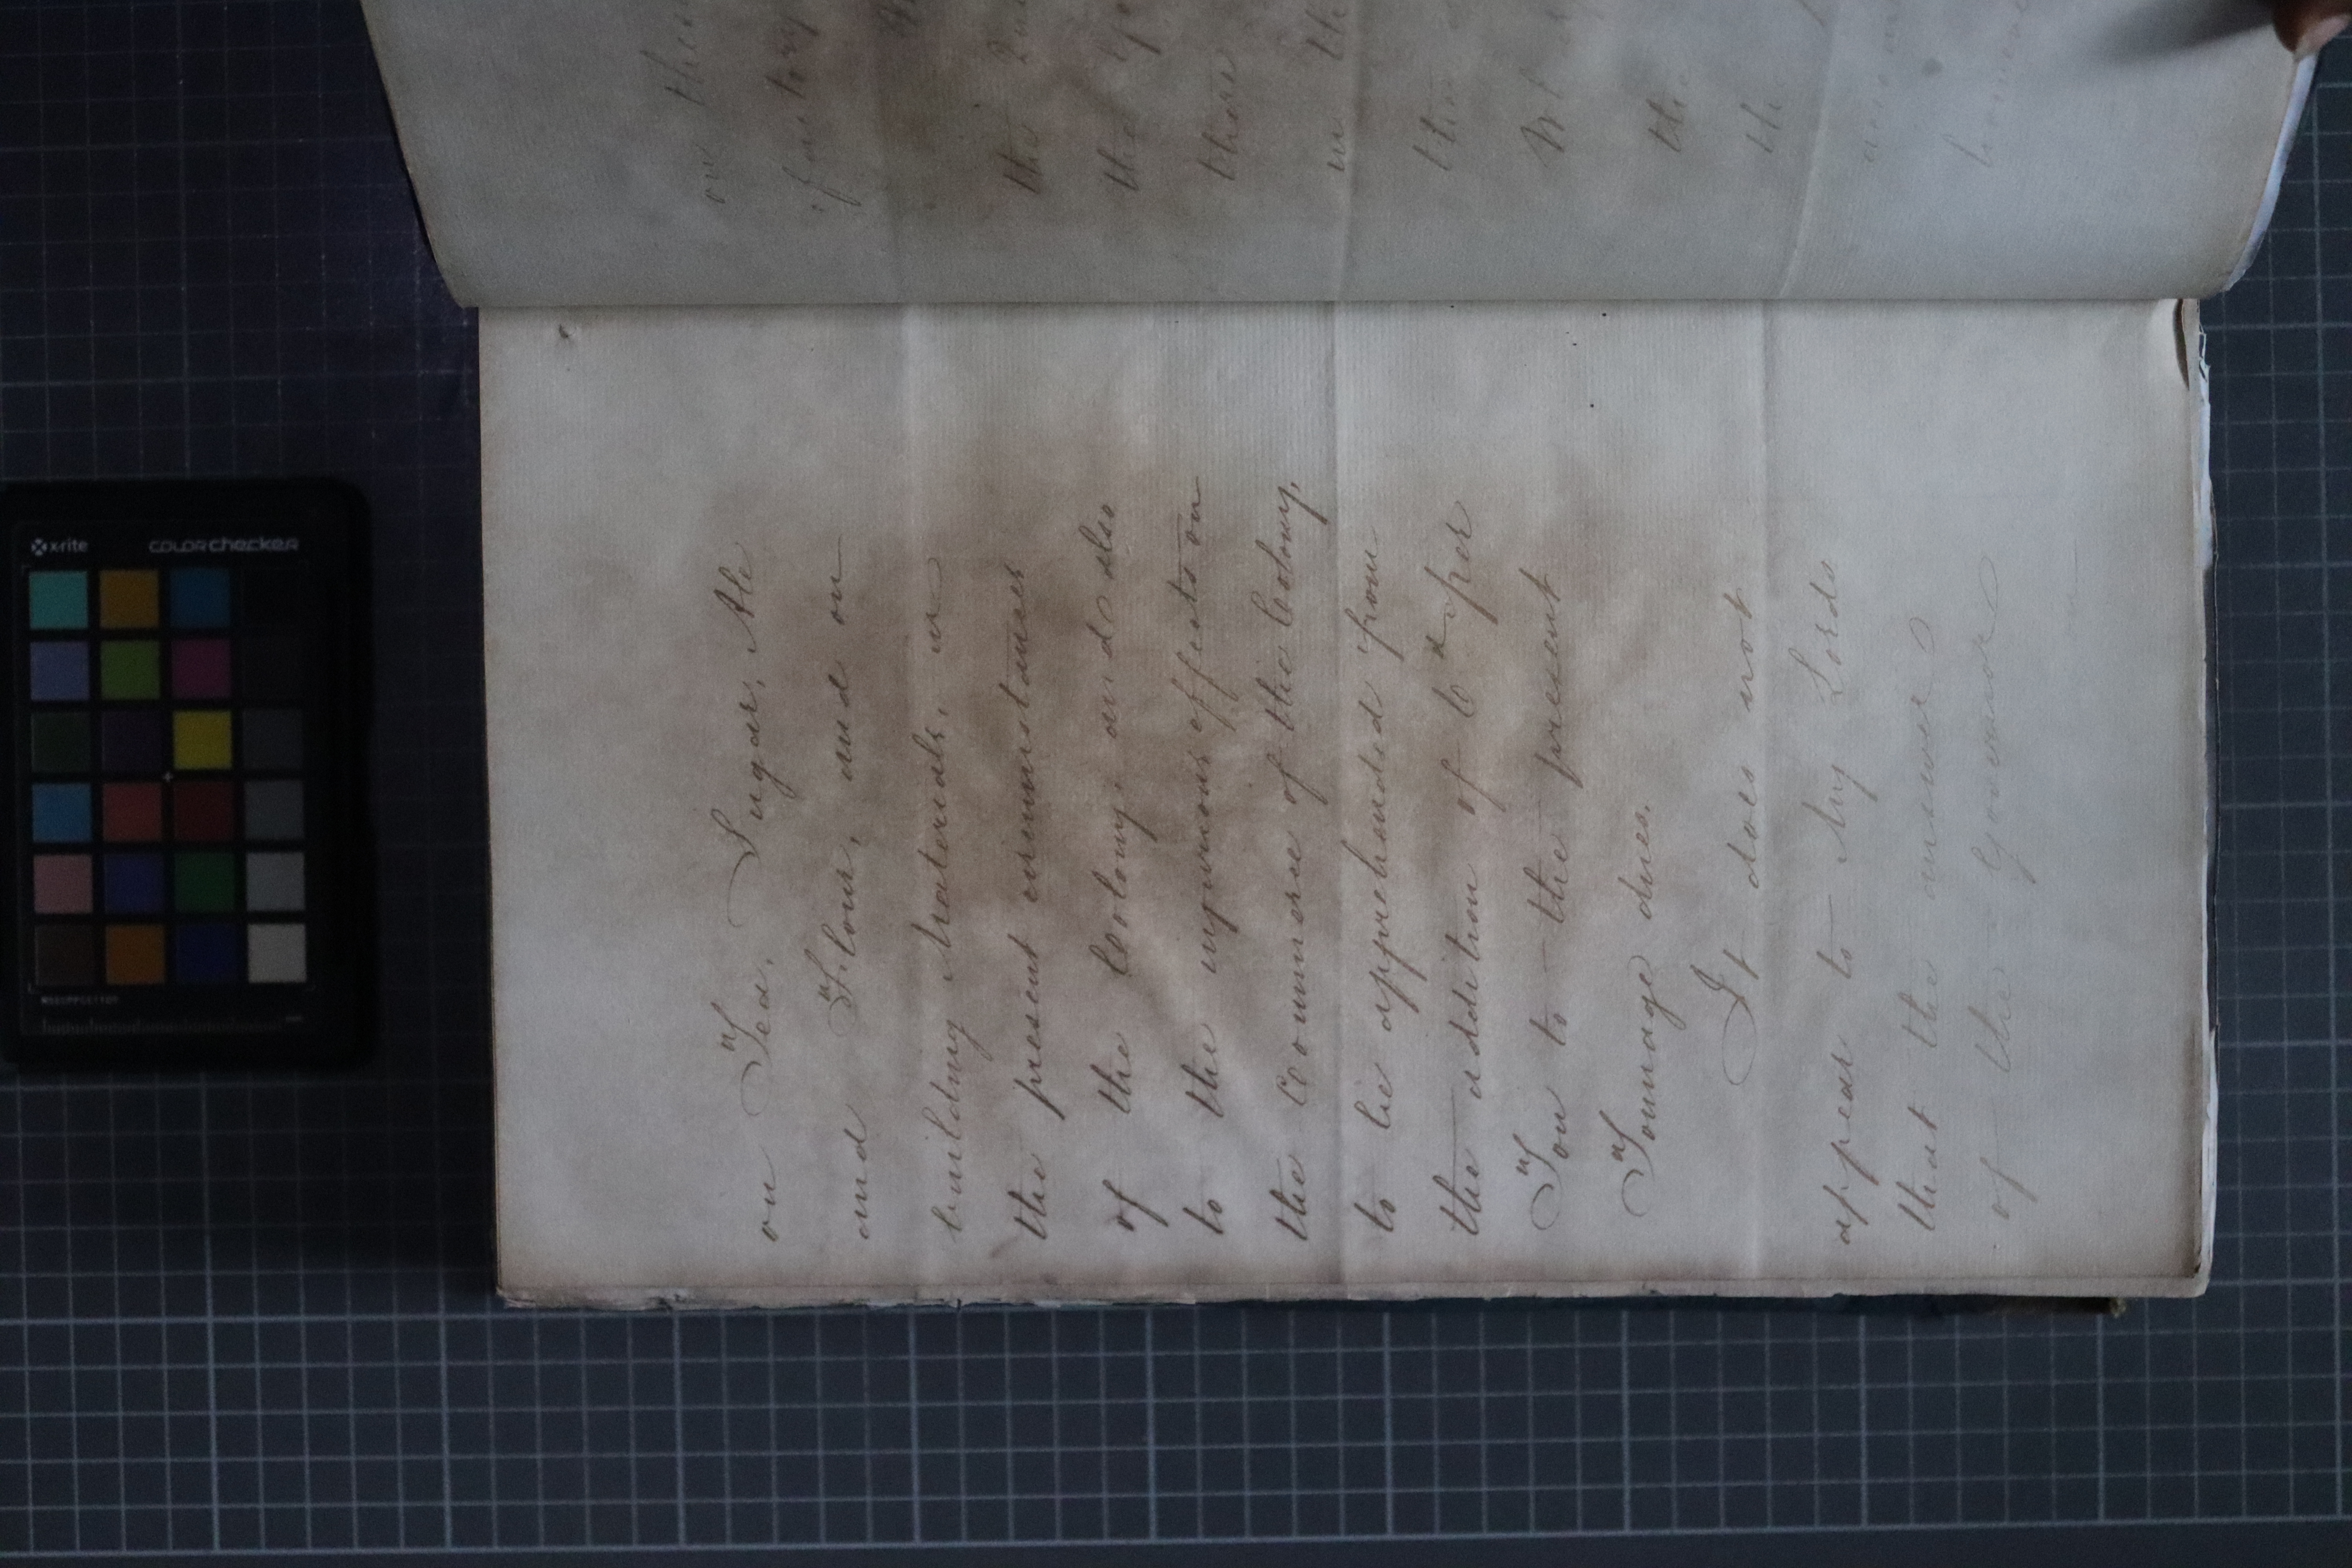 on Tea, Sugar, Ale
and Flour, and on
building Materials, in
the present circumstances
of the Colony; and also
to the injurious effects on
the Commerce of the Colony,
to be apprehended from
the addition of 6d per
Ton to the present
Tonnage dues.
It does not
appear to My Lords
that the answer
of the Governor
on
the
the
these
in the
the
the
x-rite
colorchecker